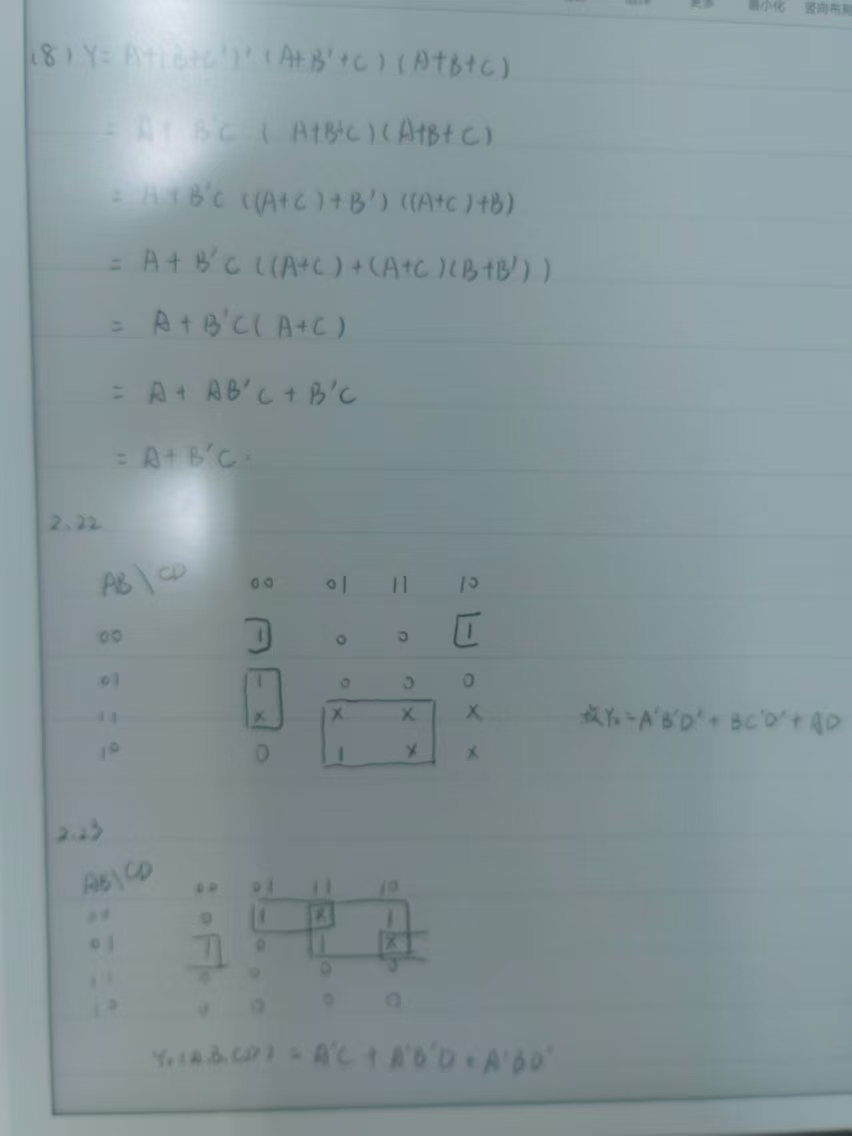 更多 最小化 竖向布局
(8) Y = A+(B+C')'(A+B'+C)(A+B+C)
= A + B'C (A+B'C)(A+B+C)
= A + B'C ((A+C)+B')((A+C)+B)
= A + B'C ((A+C)+(A+C)(B+B'))
= A + B'C(A+C)
= A + AB'C + B'C
= A + B'C.
2.22
AB\CD 00 01 11 10
00 1 0 0 1
01 1 0 0 0
11 x x x x 故Y₀=A'B'D'+BC'D'+AD
10 0 1 x x
2.23
AB\CD 00 01 11 10
00 0 1 x 1
01 1 0 1 x
11 0 0 0 0
10 0 0 0 0
Y₀(A.B.C.D) = A'C + A'B'D + A'BD'